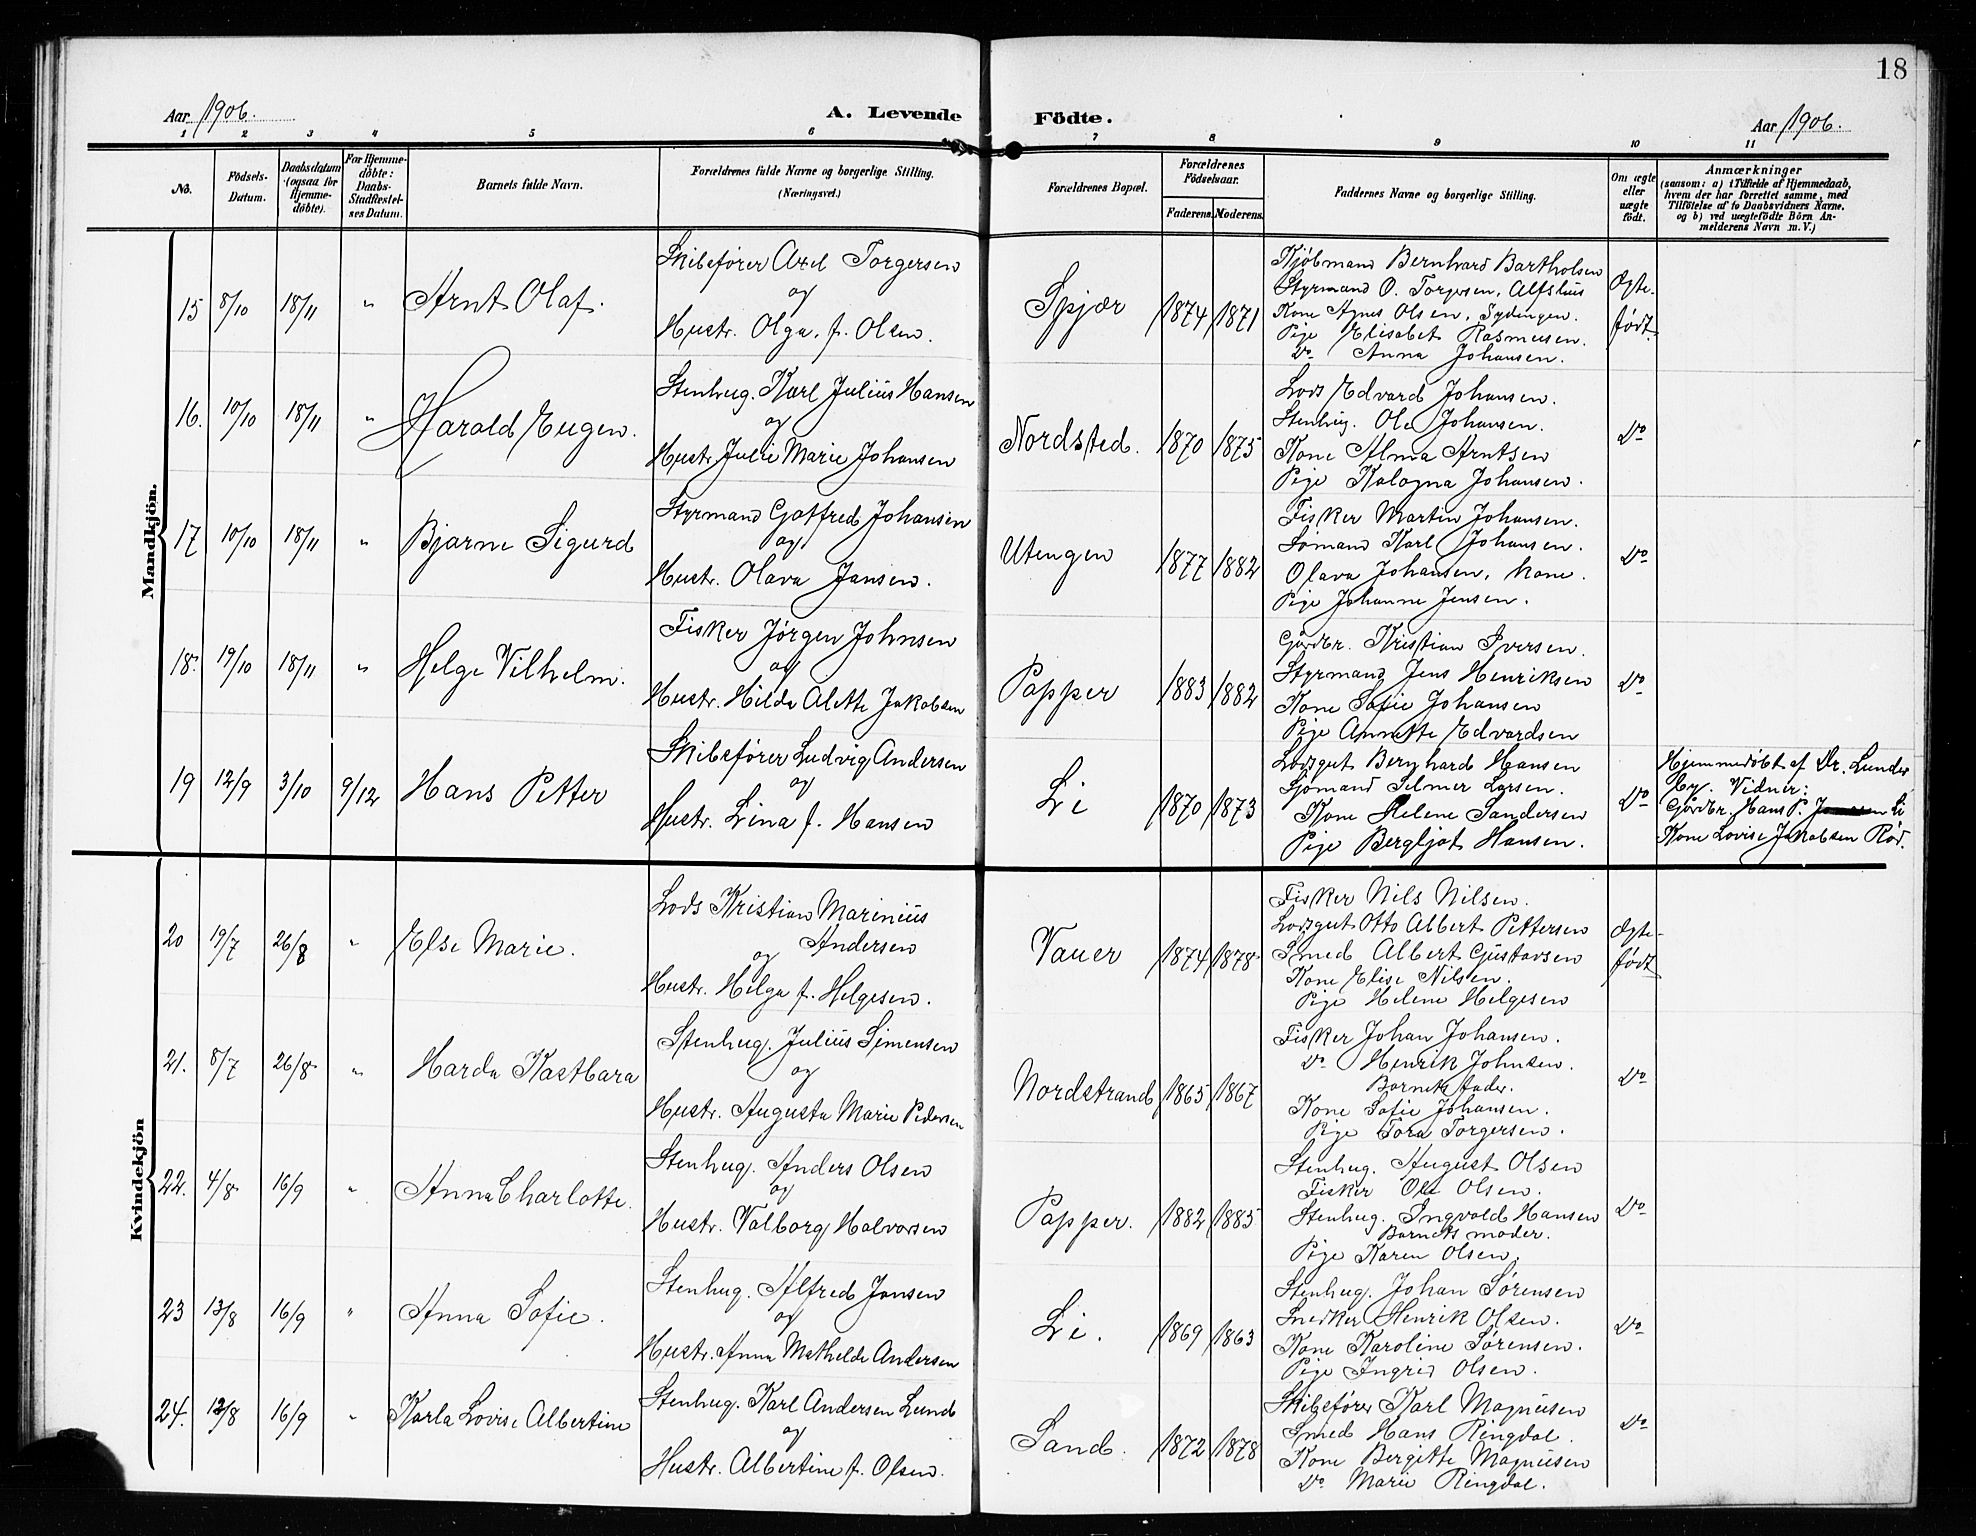 18
Aar 1906.
A. Levende Födte.
Aar 1906.
1 2 3 4 5 6 7 8 9 10 11
No.
Födsels-Datum.
Daabsdatum (ogsaa for Hjemme-döbte).
For Hjemme-döbte: Daabs-Stadfæstel-ses Datum.
Barnets fulde Navn.
Forældrenes fulde Navne og borgerlige Stilling. (Næringsvei.)
Forældrenes Bopæl.
Forældrenes Födselsaar.
Faderens. Moderens.
Faddernes Navne og borgerlige Stilling.
Om ægte eller uægte födt.
Anmærkninger
(saasom: a) i Tilfælde af Hjemmedaab, hvem der har forrettet samme, med Tilföielse af to Daabsvidners Navne, og b) ved uægtefödte Börn An-melderens Navn m. V.)
Mandkjön.
15 8/10 18/11 " Arnt Olaf.
Skibsfører Axel Torgersen
og
Hustr. Olga, f. Olsen.
Spjær 1874 1871
Kjøbmand Bernhard Bartholsen
Styrmand O. Torgersen, Alfshus
Kone Agnes Olsen, Sydengen.
Pige Elisabet Rasmusen.
Do Anna Johansen.
Ægte-født.
16. 10/10 18/11 " Harald Eugen.
Stenhug. Karl Julius Hansen
og
Hustr. Julie Marie Johansen
Nordsted. 1870 1875
Lods Edvard Johansen.
Stenhug. Ole Johansen.
Kone Alma Arntsen
Pige Kalogna Johansen.
Do
17 10/10 18/11 " Bjarne Sigurd
Styrmand Gotfred Johansen
og
Hustr. Olava Jansen.
Utengen 1877 1882
Fisker Martin Johansen.
Sømand Karl Johansen.
Olava Johansen, kone.
Pige Johanne Jensen.
Do
18. 19/10 18/11 " Helge Vilhelm.
Fisker Jørgen Johnsen
og
Hustr. Hilda Alette Jakobsen
Papper 1883 1882
Gårdbr. Kristian Iversen.
Styrmand Jens Henriksen
Kone Sofie Johansen
Pige Annette Edvardsen
Do
19 12/9 3/10 9/12 Hans Petter
Skibsfører Ludvig Andersen
og
Hustr. Lina f. Hansen
Li 1870 1873
Lodsgut Bernhard Hansen
Sjømand Selmer Larsen.
Kone Helene Sandersen
Pige Bergljot Hansen.
Do
Hjemmedøbt af Dr. Lunder
Vidner:
Gårdbr. Hans P. Li
Kone Lovise Jakobsen Rød.
Kvindekjön
20 19/7 26/8 " Else Marie.
Lods Kristian Marinius
Andersen
og
Hustr. Helga f. Helgesen.
Vauer 1874 1878
Fisker Nils Nilsen.
Lodsgut Otto Albert Pettersen
Smed Albert Gustavsen
Kone Elise Nilsen.
Pige Helene Helgesen
Ægte-født
21. 8/7 26/8 " Harda Kastbara
Stenhug. Julius Simensen
og
Hustr. Augusta Marie Pedersen
Nordstrand 1865 1867
Fisker Johan Johansen.
Do Henrik Johnsen.
Barnets fader.
Kone Sofie Johansen.
Pige Tora Torgersen.
Do
22. 4/8 16/9 " Anna Charlotte.
Stenhug. Anders Olsen
og
Hustr. Valborg Halvorsen
Papper. 1882 1885
Stenhug. August Olsen
Fisker Ole Olsen.
Stenhug. Ingvald Hansen
Barnets moder.
Pige Karen Olsen.
Do
23 13/8 16/9 " Anna Sofie.
Stenhug. Alfred Jansen
og
Hustr. Anna Mathilde Andersen
Li. 1869 1863
Stenhug. Johan Sørensen
Snedker Henrik Olsen.
Kone Karoline Sørensen.
Pige Ingrid Olsen.
Do
24. 12/8 16/9 " Karla Lovise Albertine
Stenhug. Karl Andersen Lund
og
Hustr. Albertine f. Olsen.
Sand. 1872 1878
Skibsfører Karl Magnusen
Smed Hans Ringdal.
Kone Bergitte Magnusen
Do Marie Ringdal.
Do